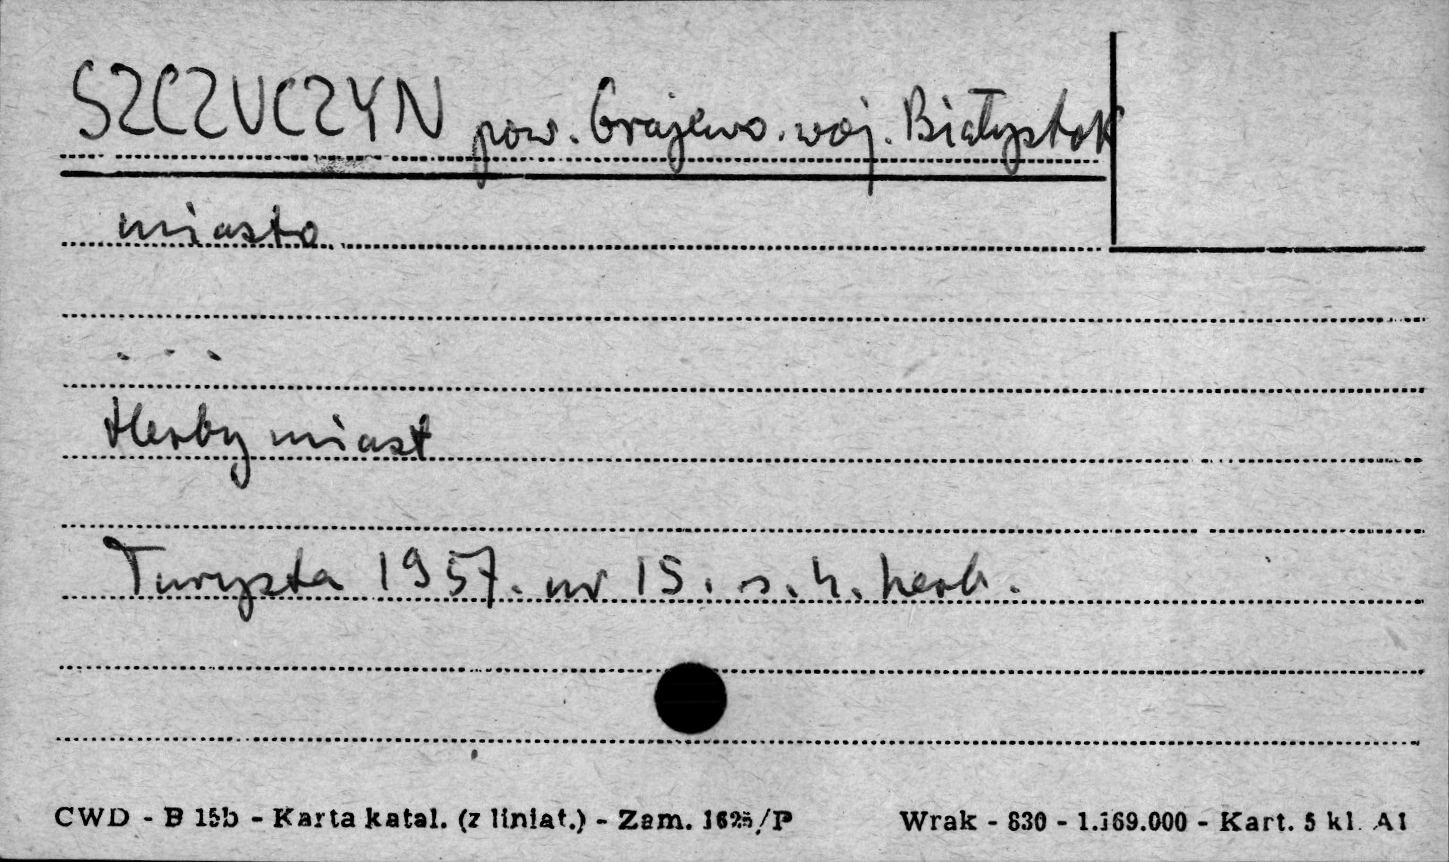 SZCZUCZYN pow. Grajewo. woj. Białystok
miasto
. . .
Herby miast
Turysta 1957. nr 15. s. 4. herb.
CWD - B 15b - Karta katal. (z liniat.) - Zam. 1625/P Wrak - 830 - 1.169.000 - Kart. 5 kl. A1